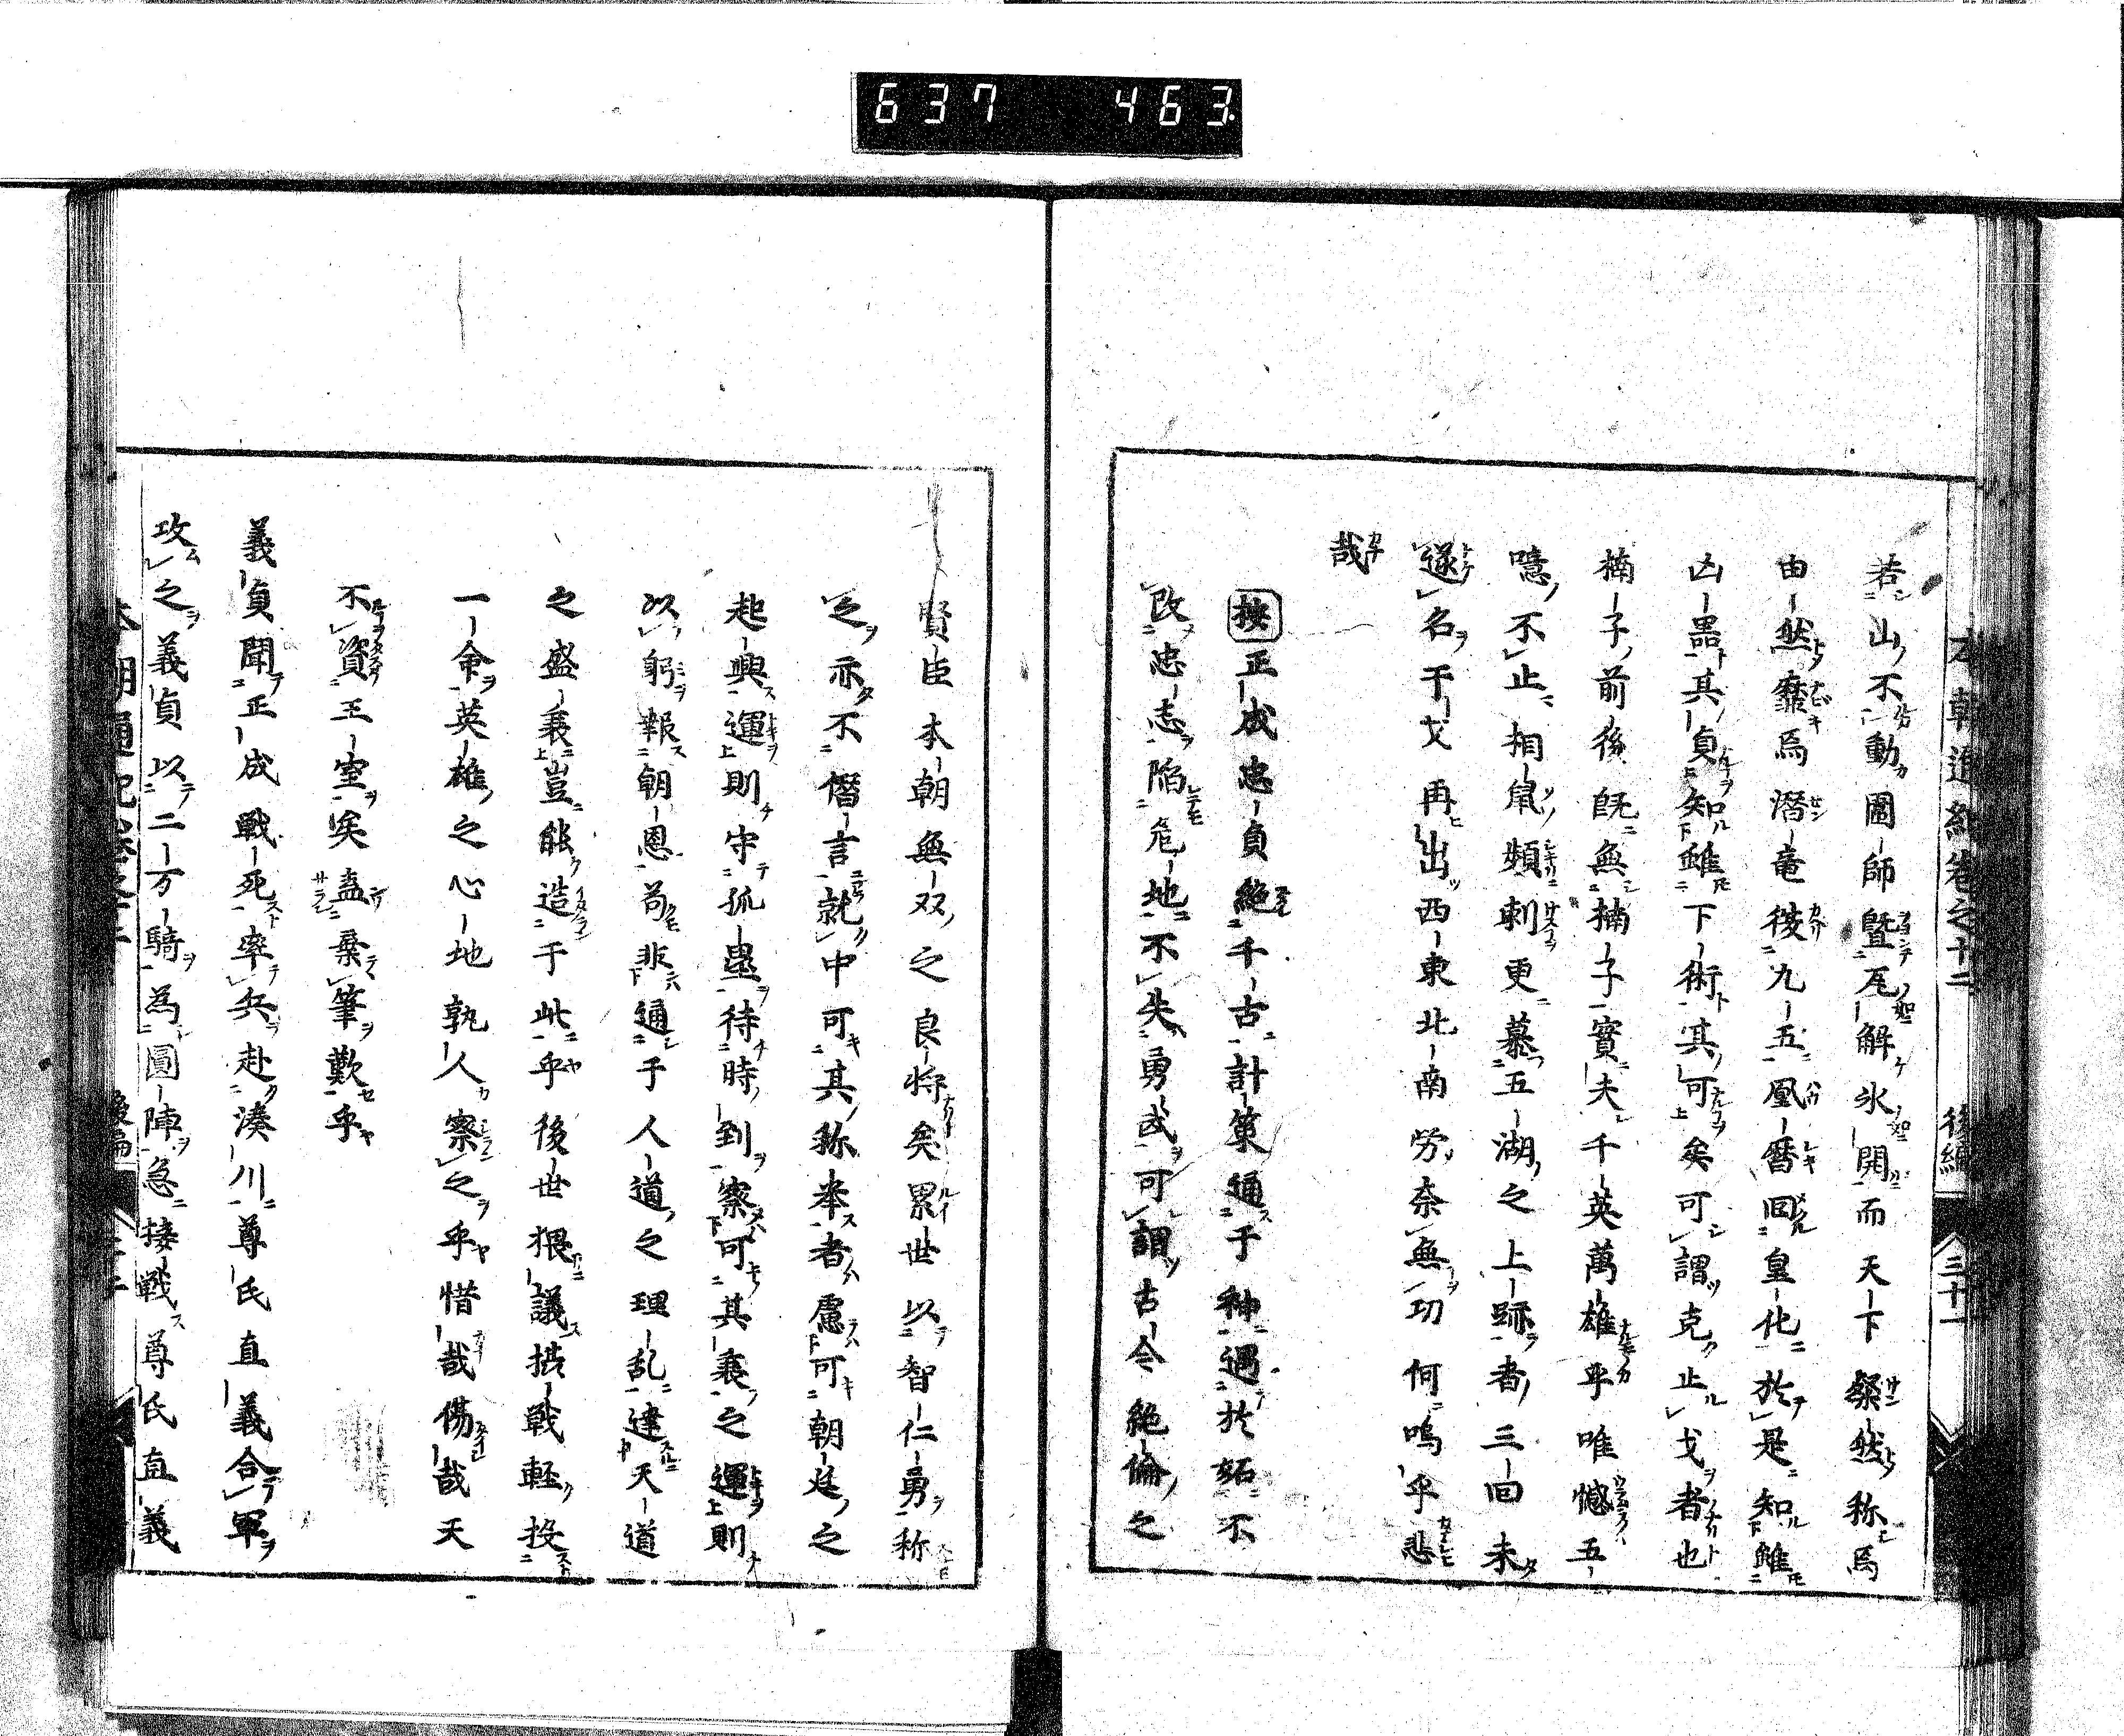 637 463
本朝通紀卷之十二 後編 三十一
若山不動圖師曁瓦解氷開而天下粲然称焉
由然靡焉潛竜彼九五凰暦回皇化於是知雖
凶器其負知雖下術其可矣可謂克止戈者也
楠子前後既無楠子實夫千英萬雄乎唯憾五
噫不止相鼠頻刺更慕五湖之上跡者三回未
遂名干戈再出西東北南勞奈無功何嗚乎悲
哉
按正成忠貞絶千古計策通于神遇於妬不
改忠志陥危地不失勇武可謂古今絶倫之
賢臣本朝無双之良将矣累世以智仁勇称
之亦不僭言就中可其称挙者慮可朝廷之
起興運則守孤壘待時到察可其衰之運則
以躬報朝恩苟非通于人道之理乱達天道
之盛衰豈能造于此乎後世猥議挑戦軽投
一命英雄之心地孰人察之乎惜哉傷哉天
不資王室矣盍棄筆歎乎
義貞聞正成戦死率兵赴湊川尊氏直義合軍
攻之義貞以二万騎為圓陣急接戦尊氏直義